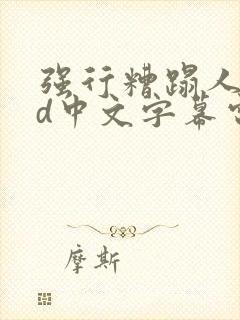 强行糟蹋人
d中文字幕
摩斯